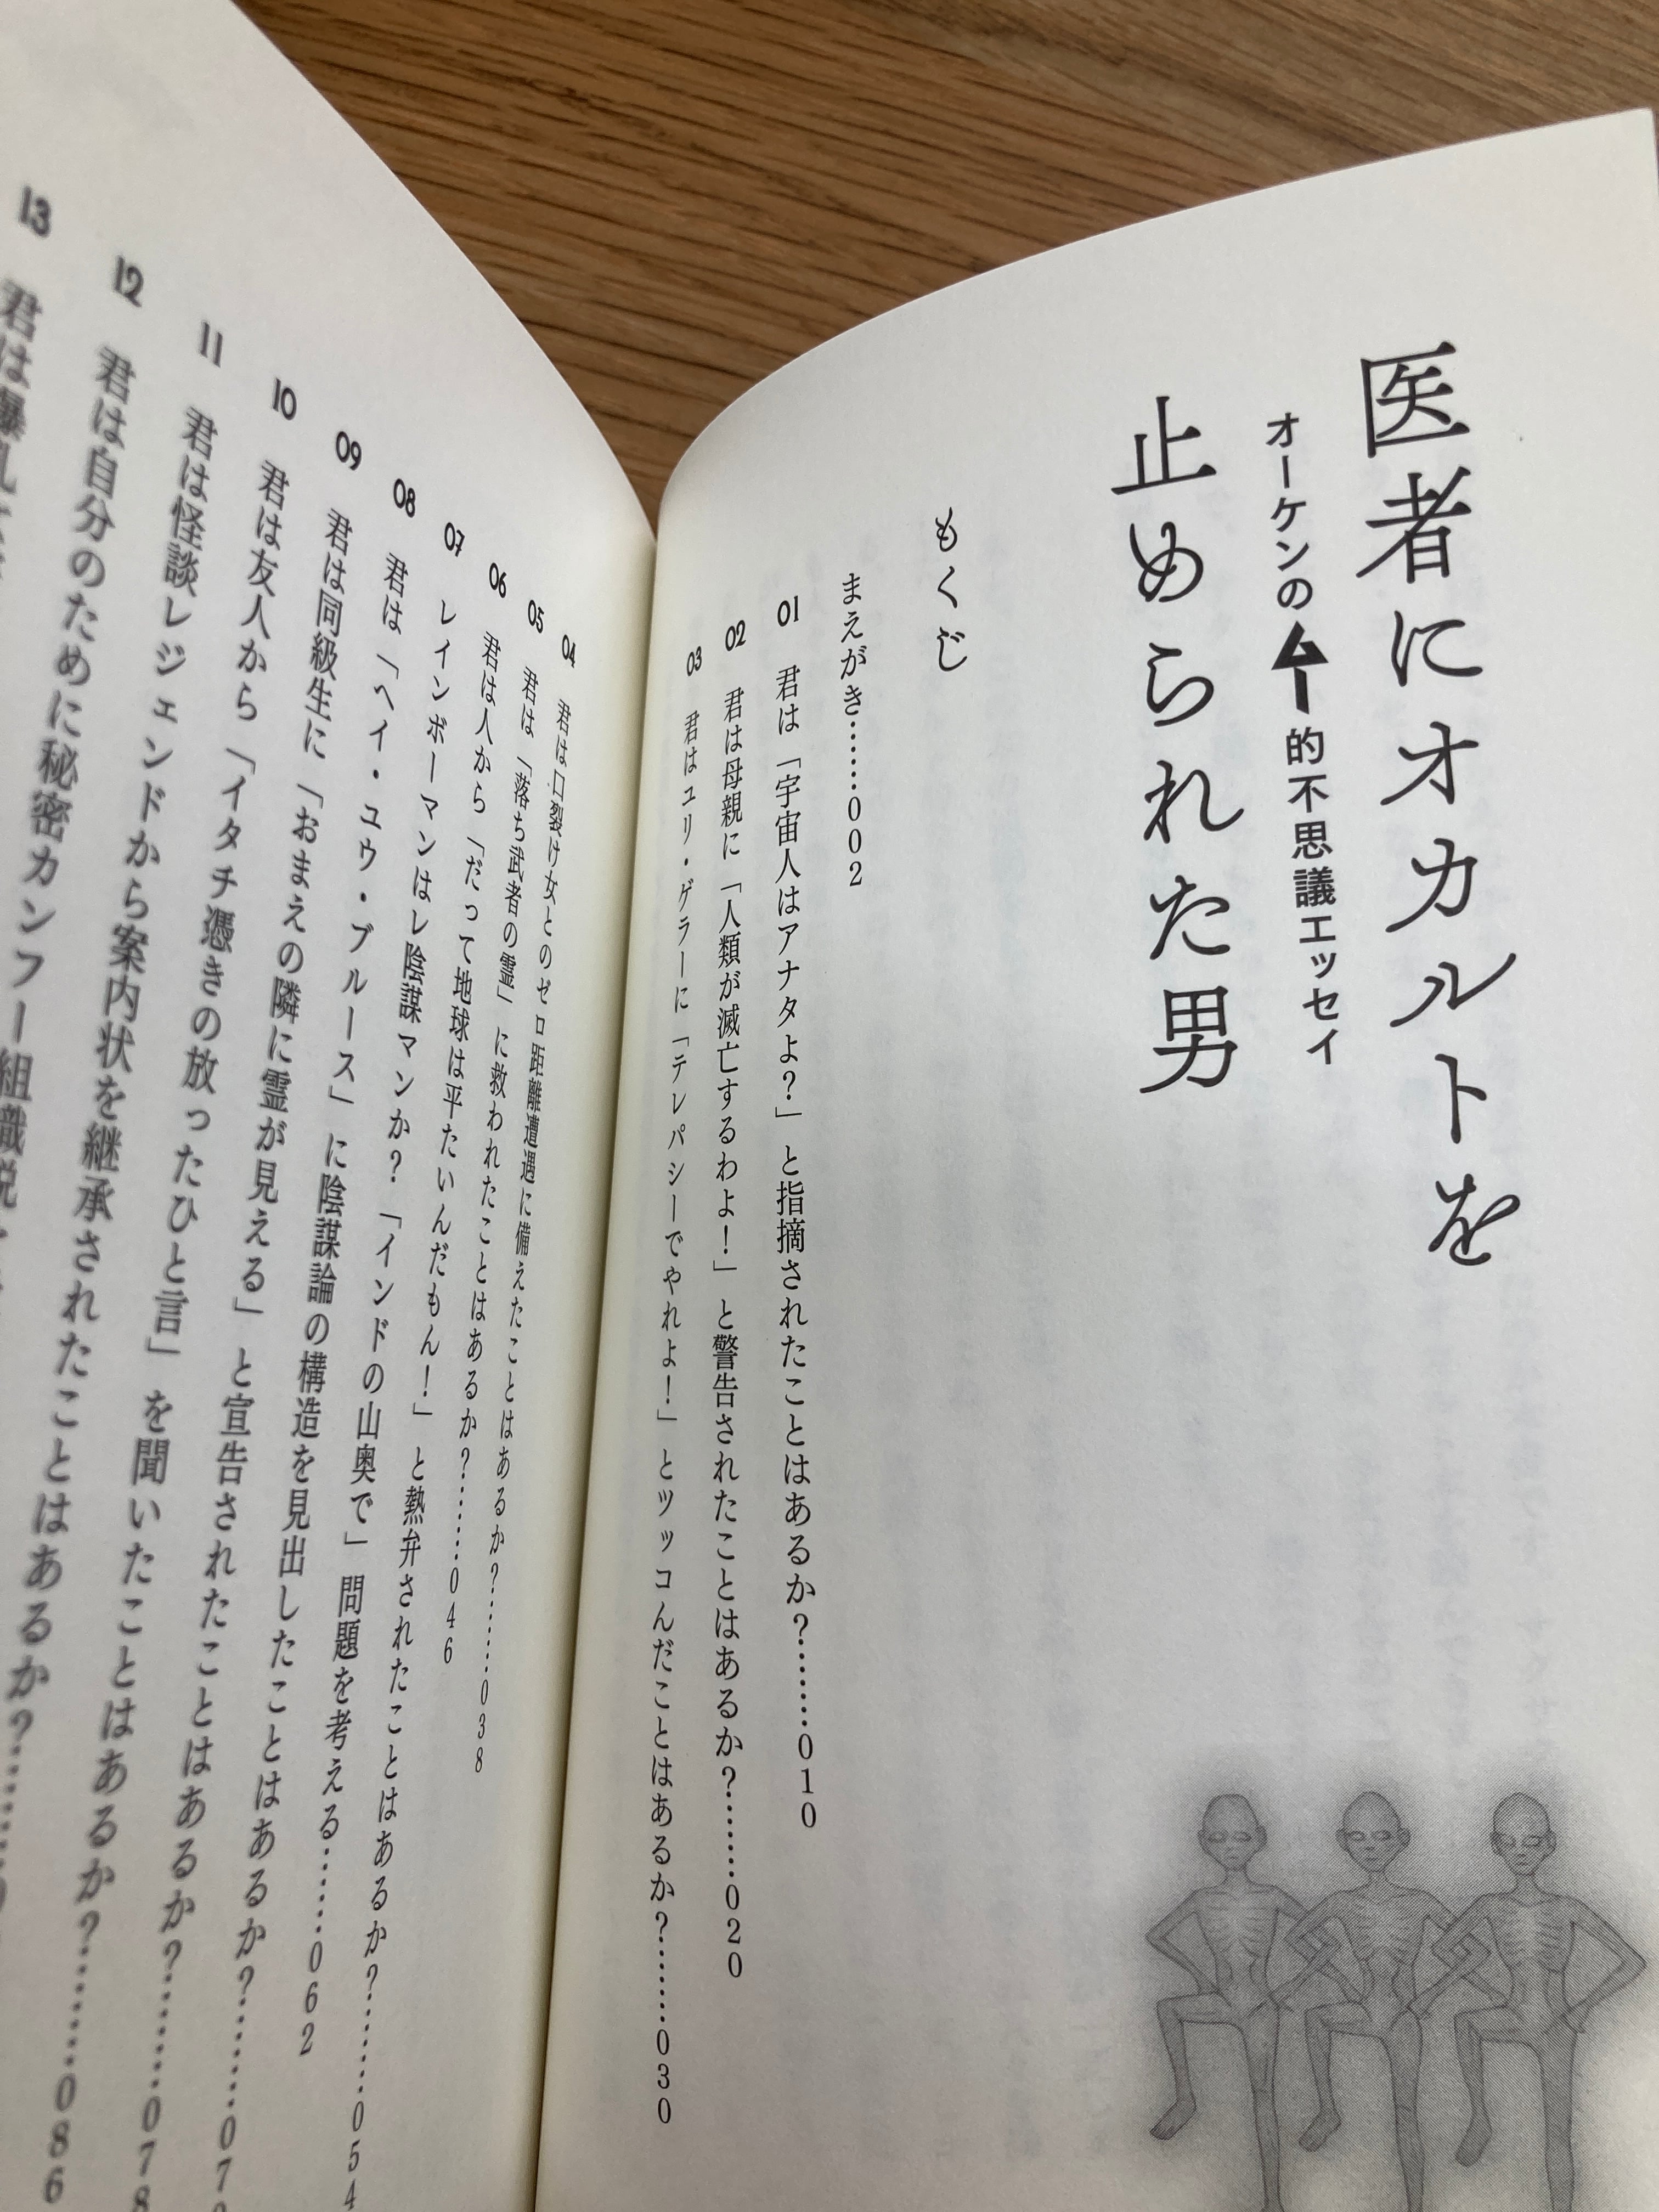 医者にオカルトを
止められた男
オーケンのムー的不思議エッセイ
もくじ
まえがき……002
01 君は「宇宙人はアナタよ?」と指摘されたことはあるか?……010
02 君は母親に「人類が滅亡するわよ!」と警告されたことはあるか?……020
03 君はユリ・ゲラーに「テレパシーでやれよ!」とツッコんだことはあるか?……030
04 君は口裂け女とのゼロ距離遭遇に備えたことはあるか?……038
05 君は「落ち武者の霊」に救われたことはあるか?……046
06 君は人から「だって地球は平たいんだもん!」と熱弁されたことはあるか?……054
07 レインボーマンはレ陰謀マンか?「インドの山奥で」問題を考える……062
08 君は「ヘイ・ユウ・ブルース」に陰謀論の構造を見出したことはあるか?……07
09 君は同級生に「おまえの隣に霊が見える」と宣告されたことはあるか?……078
10 君は友人から「イタチ憑きの放ったひと言」を聞いたことはあるか?……086
11 君は怪談レジェンドから案内状を継承されたことはあるか?……
12 君は自分のために秘密カンフー組織
13 君は爆乳